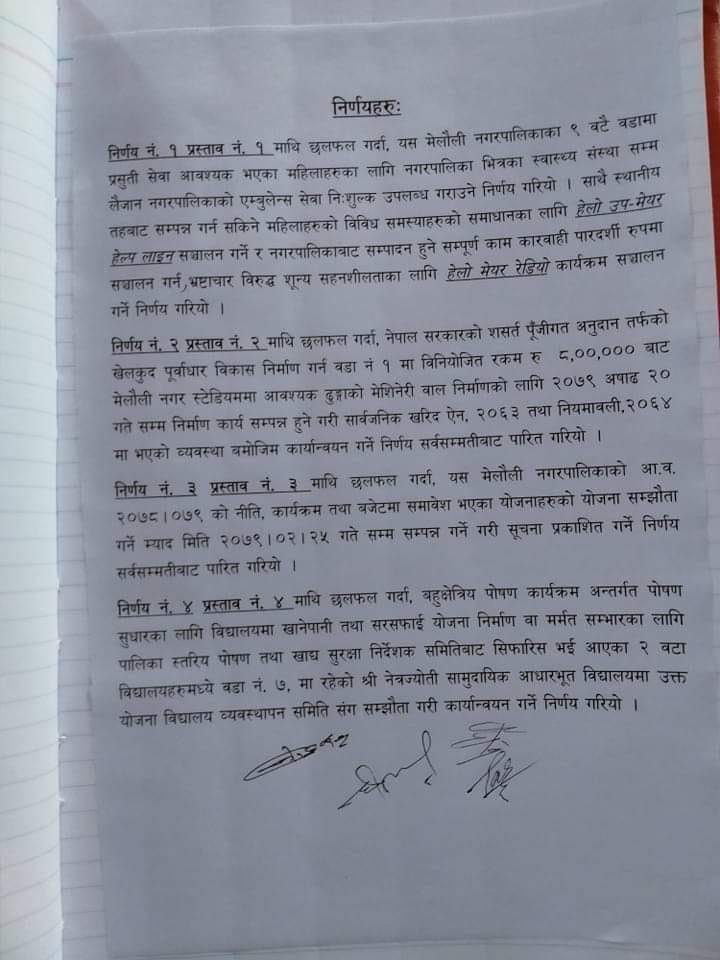 निर्णयहरुः
निर्णय नं. १ प्रस्ताव नं. १ माथि छलफल गर्दा, यस मेलौली नगरपालिकाका ९ वटै वडामा
प्रसुती सेवा आवश्यक भएका महिलाहरुका लागि नगरपालिका भित्रका स्वास्थ्य संस्था सम्म
लैजान नगरपालिकाको एम्बुलेन्स सेवा निःशुल्क उपलब्ध गराउने निर्णय गरियो । साथै स्थानीय
तहबाट सम्पन्न गर्न सकिने महिलाहरुको विविध समस्याहरुको समाधानका लागि हेलो उप-मेयर
हेल्प लाइन सञ्चालन गर्ने र नगरपालिकाबाट सम्पादन हुने सम्पूर्ण काम कारवाही पारदर्शी रुपमा
सञ्चालन गर्न,भ्रष्टाचार विरुद्ध शून्य सहनशीलताका लागि हेलो मेयर रेडियो कार्यक्रम सञ्चालन
गर्ने निर्णय गरियो ।
निर्णय नं. २ प्रस्ताव नं. २ माथि छलफल गर्दा, नेपाल सरकारको शसर्त पूँजीगत अनुदान तर्फको
खेलकुद पूर्वाधार विकास निर्माण गर्न वडा नं १ मा विनियोजित रकम रु ८,००,००० बाट
मेलौली नगर स्टेडियममा आवश्यक ढुङ्गाको मेशिनेरी वाल निर्माणको लागि २०७९ अषाढ २०
गते सम्म निर्माण कार्य सम्पन्न हुने गरी सार्वजनिक खरिद ऐन, २०६३ तथा नियमावली,२०६४
मा भएको व्यवस्था बमोजिम कार्यान्वयन गर्ने निर्णय सर्वसम्मतीबाट पारित गरियो ।
निर्णय नं. ३ प्रस्ताव नं. ३ माथि छलफल गर्दा, यस मेलौली नगरपालिकाको आ.व.
२०७८।०७९ को नीति, कार्यक्रम तथा बजेटमा समावेश भएका योजनाहरुको योजना सम्झौता
गर्ने म्याद मिति २०७९।०२।२५ गते सम्म सम्पन्न गर्ने गरी सूचना प्रकाशित गर्ने निर्णय
सर्वसम्मतीबाट पारित गरियो ।
निर्णय नं. ४ प्रस्ताव नं. ४ माथि छलफल गर्दा, बहुक्षेत्रिय पोषण कार्यक्रम अन्तर्गत पोषण
सुधारका लागि विद्यालयमा खानेपानी तथा सरसफाई योजना निर्माण वा मर्मत सम्भारका लागि
पालिका स्तरिय पोषण तथा खाद्य सुरक्षा निर्देशक समितिबाट सिफारिस भई आएका २ वटा
विद्यालयहरुमध्ये वडा नं. ७, मा रहेको श्री नेत्रज्योती सामुदायिक आधारभूत विद्यालयमा उक्त
योजना विद्यालय व्यवस्थापन समिति संग सम्झौता गरी कार्यान्वयन गर्ने निर्णय गरियो ।